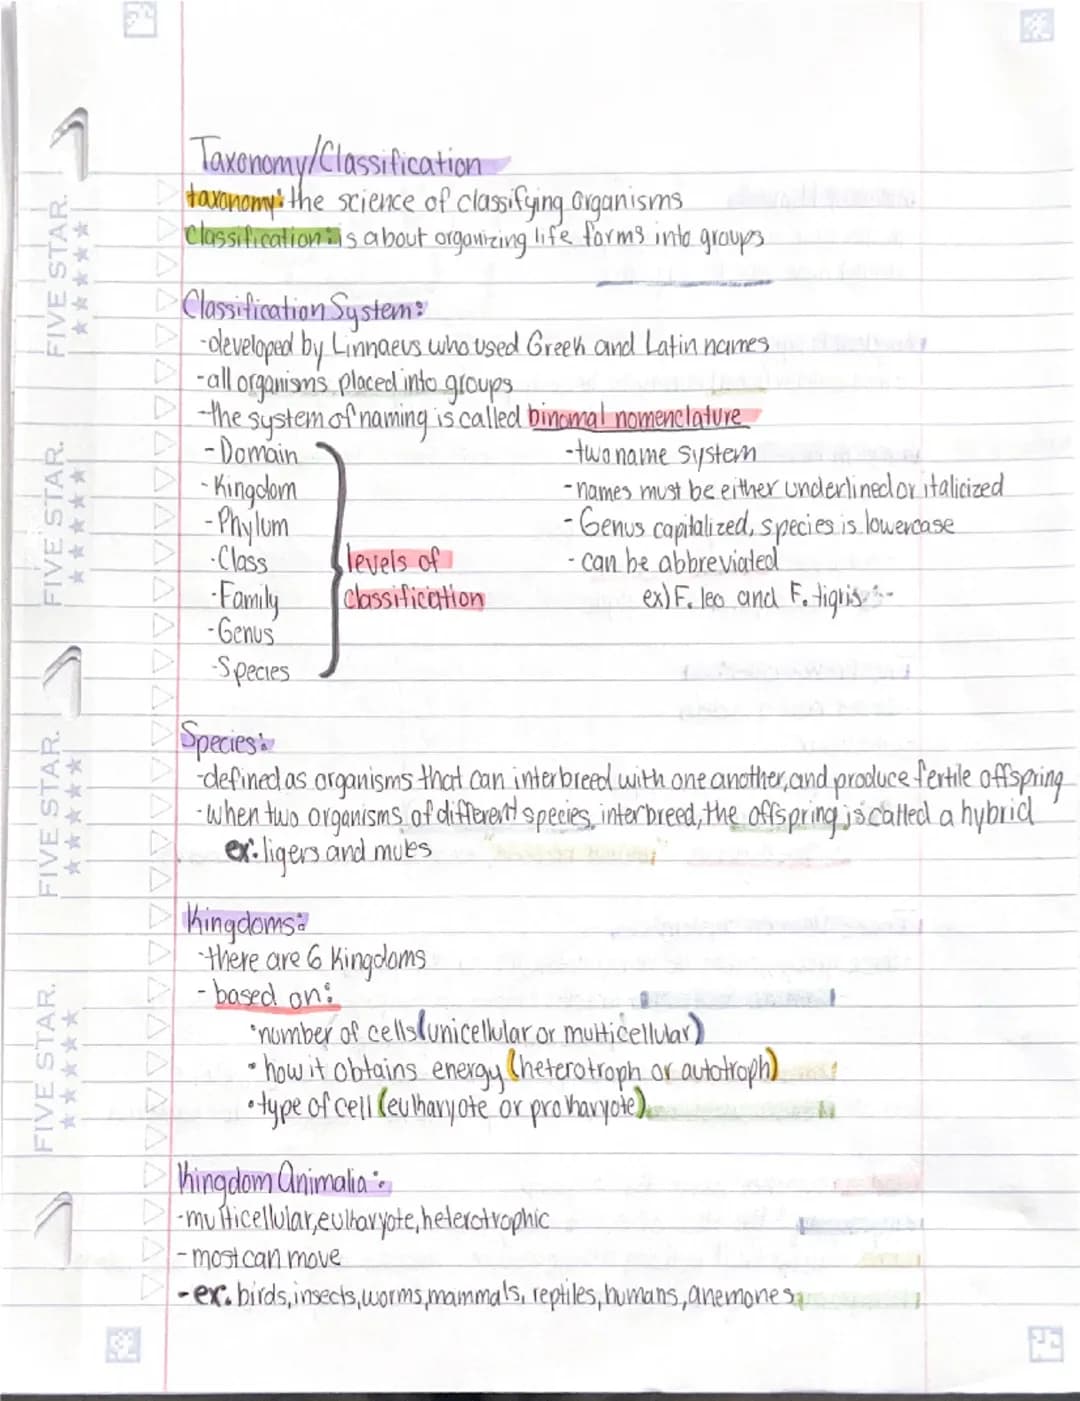 Taxonomy/Classification
taxonomy: the science of classifying organisms
Classification: is about organizing life forms into groups
Classification System:
-developed by Linnaeus who used Greek and Latin names
-all organisms placed into groups
-the system of naming is called binomal nomenclature
-Domain
-two name system
-Kingdom
-names must be either underlined or italicized
-Phylum
-Genus capitalized, species is lowercase
-Class
levels of
-can be abbreviated
-Family
classification
ex) F. leo and F. tigris
-Genus
-Species
Species:
-defined as organisms that can interbreed with one another, and produce fertile offspring
-when two organisms of different species interbreed, the offspring is called a hybrid
ex: ligers and mules
Kingdoms:
-there are 6 Kingdoms
-based on:
•number of cells (unicellular or multicellular)
•how it obtains energy (heterotroph or autotroph)
•type of cell (eukaryote or prokaryote)
Kingdom Animalia:
-multicellular, eukaryote, heterotrophic
-most can move
-ex. birds, insects, worms, mammals, reptiles, humans, anemones
FIVE STAR.
FIVE STAR.
FIVE STAR.
FIVE STAR.